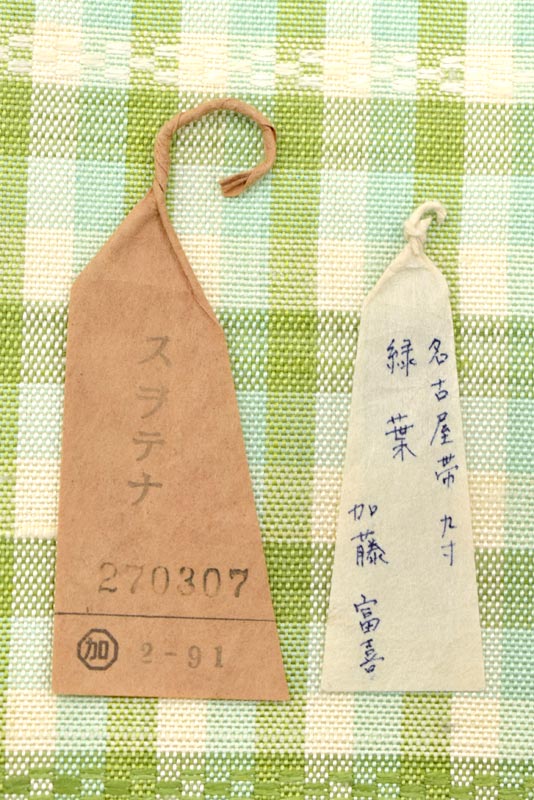 スヲテナ
270307
加 2-91
名古屋帯 九寸
緑葉
加藤 富喜